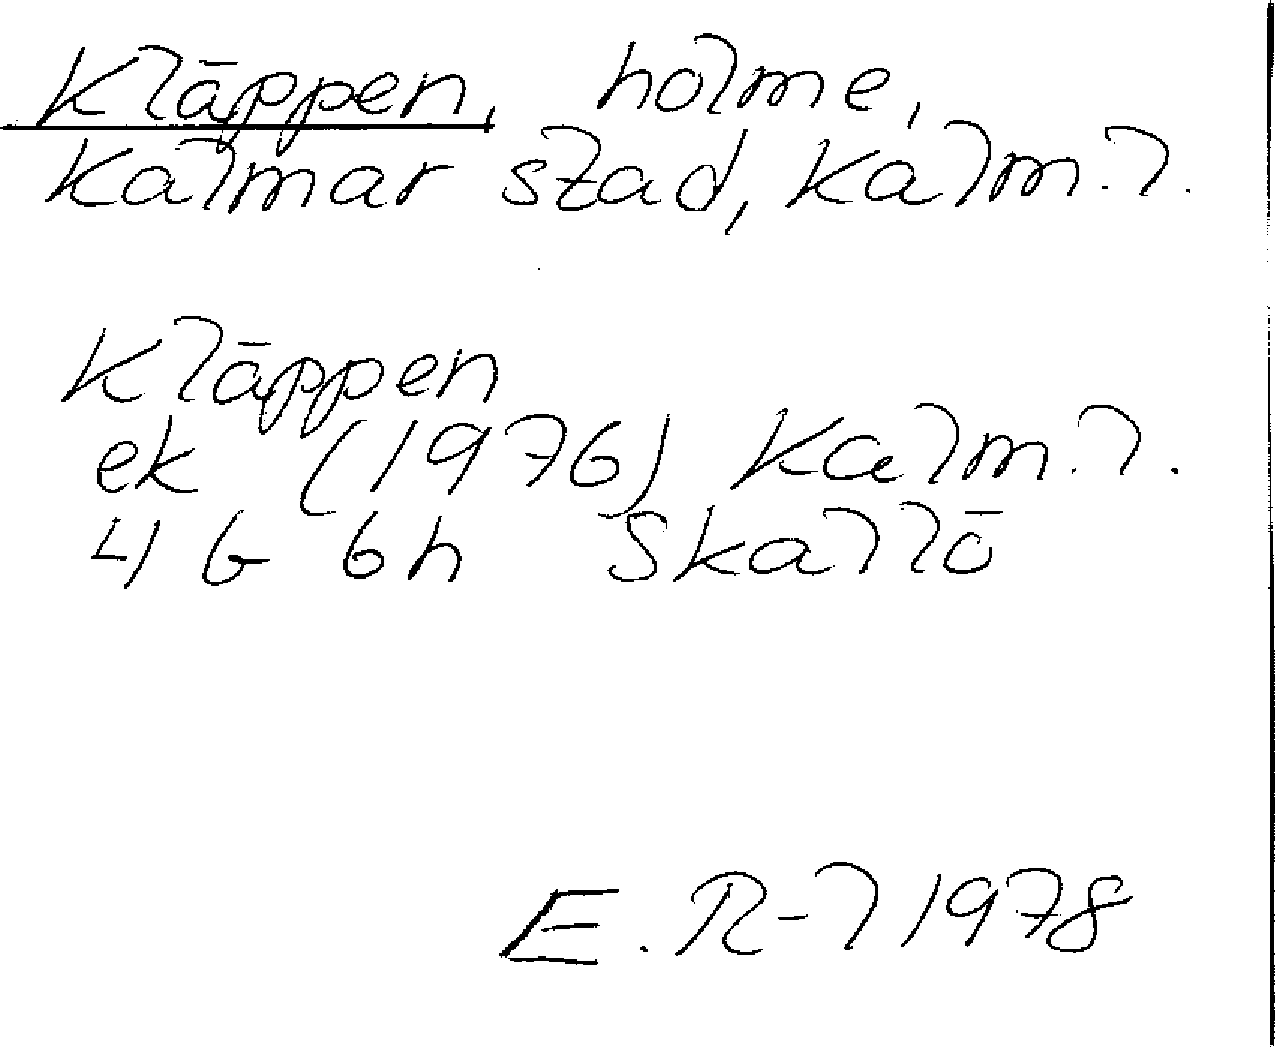 Kläppen, holme,
Kalmar stad, Kalm. l.
Kläppen
ek (1976) Kalm. l.
4 G 6h Skallö
E. R-l 1978